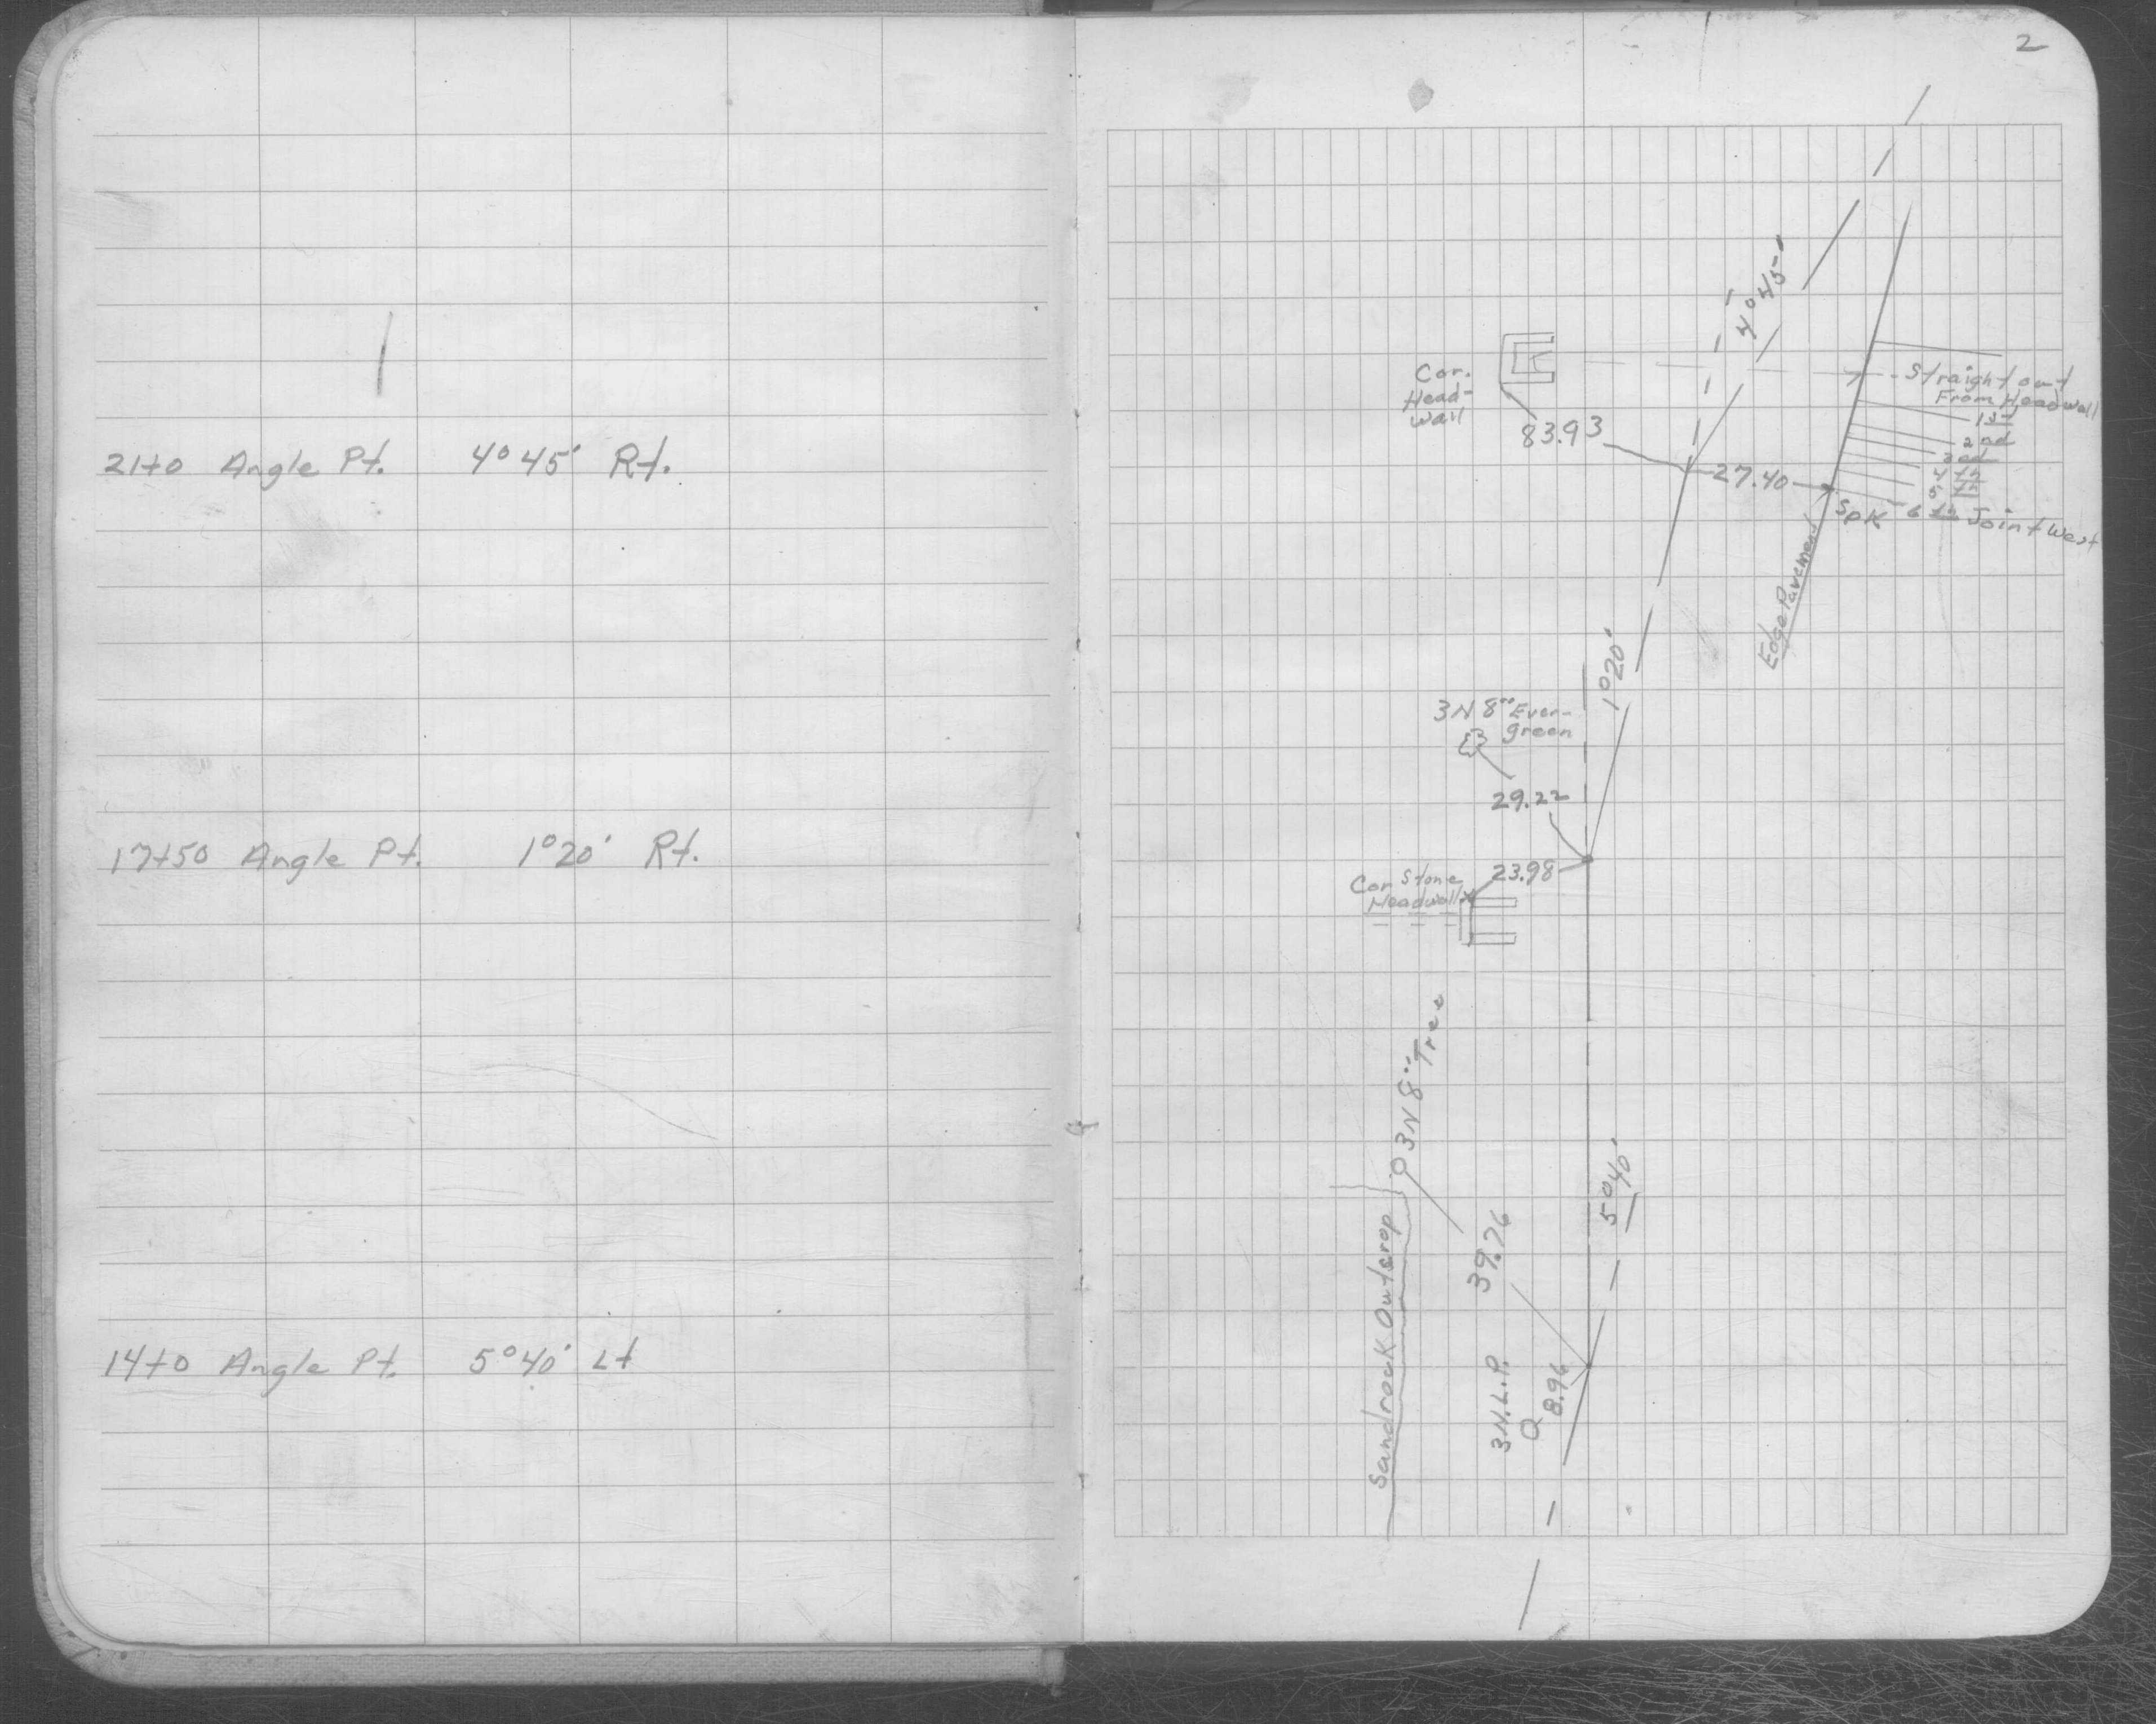 21+0 Angle Pt. 4°45' Rt.
17+50 Angle Pt. 1°20' Rt.
14+0 Angle Pt. 5°40' Lt
2
4°45'
Cor.
Head-
wall
83.93
27.40
Straight out
From Headwall
1st
2nd
3rd
4th
5th
Spk 6th Joint West
Edge Pavement
1°20'
3N 8" Ever-
green
29.22
23.98
Cor Stone
Headwall
3N 8" Tree
5°40'
39.76
Sandrock Outcrop
3N.L.P.
8.96